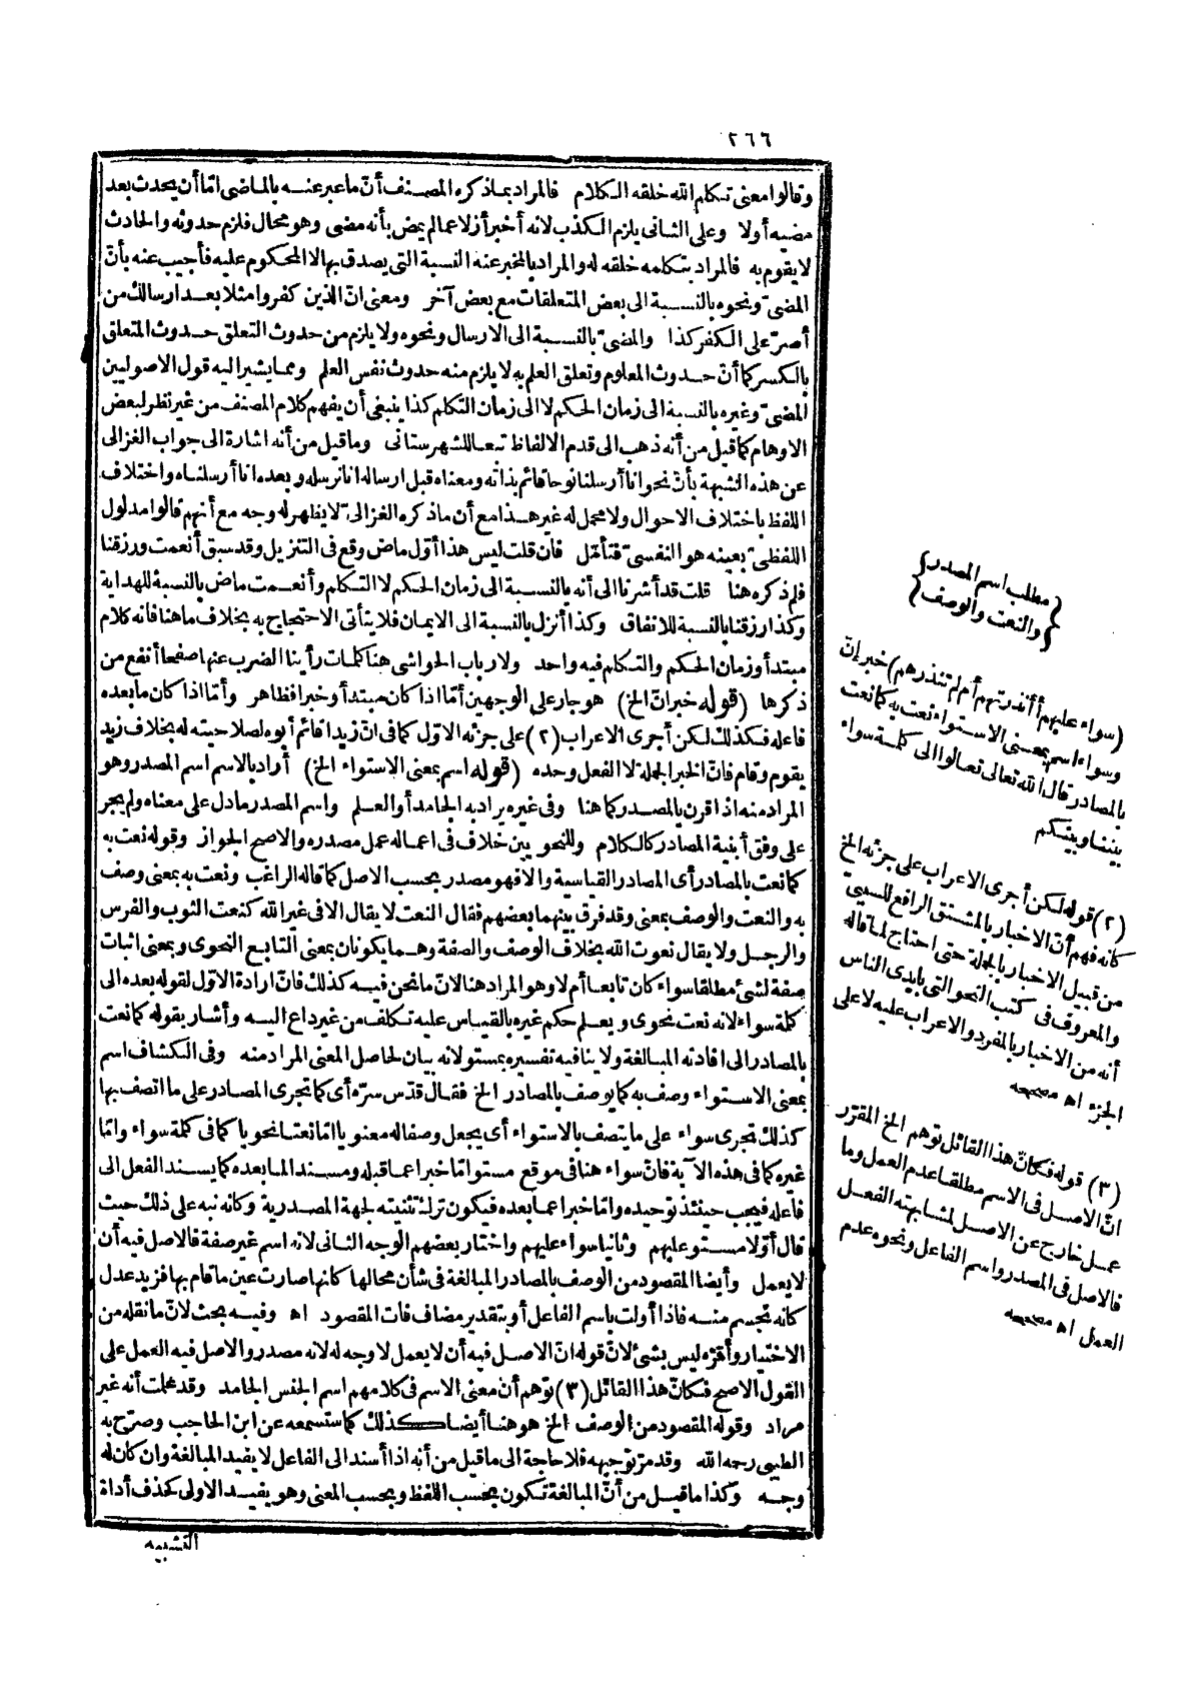 ٢٦٦
وقالوا معنى تكلم الله خلقه الكلام فالمراد بما ذكره المصنف أنّ ما عبر عنه بالماضى امّا أن يحدث بعد
مضيه أولا وعلى الثانى يلزم الكذب لانه أخبر أزلا عما لم يمض بأنه مضى وهو محال فلزم حدوثه والحادث
لا يقوم به فالمراد بتكلمه خلقه له والمراد بالمخبر عنه النسبة التى يصدق بها لا المحكوم عليه فأجيب عنه بأنّ
المضىّ ونحوه بالنسبة الى بعض المتعلقات مع بعض آخر ومعنى انّ الذين كفروا مثلا بعد ارسالك من
أصرّ على الكفر كذا والمضىّ بالنسبة الى الارسال ونحوه ولا يلزم من حدوث التعلق حدوث المتعلق
بالكسر كما أنّ حدوث المعلوم وتعلق العلم به لا يلزم منه حدوث نفس العلم ومما يشير اليه قول الاصوليين
المضىّ وغيره بالنسبة الى زمان الحكم لا الى زمان التكلم كذا ينبغى أن يفهم كلام المصنف من غير نظر لبعض
الاوهام كما قيل من أنه ذهب الى قدم الالفاظ تبعا للشهرستانى وما قيل من أنه اشارة الى جواب الغزالى
عن هذه الشبهة بأنّ نحو انا أرسلنا نوحا قائم بذاته ومعناه قبل ارساله انا نرسله وبعده انا أرسلناه واختلاف
اللفظ باختلاف الاحوال ولا محمل له غير هذا مع أن ما ذكره الغزالىّ لا يظهر له وجه مع أنهم قالوا مدلول
اللفظىّ بعينه هو النفسىّ فتأمّل فان قلت ليس هذا أوّل ماض وقع فى التنزيل وقد سبق أنعمت ورزقنا
فلم ذكره هنا قلت قد أشرنا الى أنه بالنسبة الى زمان الحكم لا التكلم وأنعمت ماض بالنسبة للهداية
وكذا رزقنا بالنسبة للانفاق وكذا أنزل بالنسبة الى الايمان فلا يتأتى الاحتجاج به بخلاف ما هنا فانه كلام
مبتدأ وزمان الحكم والتكلم فيه واحد ولارباب الحواشى هنا كلمات رأينا الضرب عنها صفحا أنفع من
ذكرها (قوله خبر انّ الخ) هو جار على الوجهين أمّا اذا كان مبتدأ وخبرا فظاهر وأمّا اذا كان ما بعده
فاعله فكذلك لكن أجرى الاعراب (٢) على جزئه الاوّل كما فى انّ زيدا قائم أبوه لصلاحيته له بخلاف زيد
يقوم وقام فانّ الخبر الجملة لا الفعل وحده (قوله اسم بمعنى الاستواء الخ) أراد بالاسم اسم المصدر وهو
المراد منه اذا قرن بالمصدر كما هنا وفى غيره يراد به الجامد أو العلم واسم المصدر ما دل على معناه ولم يجر
على وفق أبنية المصادر كالكلام وللنحويين خلاف فى اعماله عمل مصدره والاصح الجواز وقوله نعت به
كما نعت بالمصادر أى المصادر القياسية والا فهو مصدر بحسب الاصل كما قاله الراغب ونعت به بمعنى وصف
به والنعت والوصف بمعنى وقد فرق بينهما بعضهم فقال النعت لا يقال الا فى غير الله كنعت الثوب والفرس
والرجل ولا يقال نعوت الله بخلاف الوصف والصفة وهما يكونان بمعنى التابع النحوى وبمعنى اثبات
صفة لشئ مطلقا سواء كان تابعا أم لا وهو المراد هنا لانّ ما نحن فيه كذلك فانّ ارادة الاوّل لقوله بعده الى
كلمة سواء لانه نعت نحوى ويعلم حكم غيره بالقياس عليه تكلف من غير داع اليه وأشار بقوله كما نعت
بالمصادر الى افادته المبالغة ولا ينافيه تفسيره بمستو لانه بيان لحاصل المعنى المراد منه وفى الكشاف اسم
بمعنى الاستواء وصف به كما يوصف بالمصادر الخ فقال قدّس سرّه أى كما تجرى المصادر على ما اتصف بها
كذلك تجرى سواء على ما يتصف بالاستواء أى يجعل وصفا له معنويا امّا نعتا نحويا كما فى كلمة سواء وامّا
غيره كما فى هذه الآية فانّ سواء هنا فى موقع مستو امّا خبرا عما قبله ومسندا لما بعده كما يسند الفعل الى
فاعله فيجب حينئذ توحيده وامّا خبرا عما بعده فيكون ترك تثنيته لجهة المصدرية وكانه نبه على ذلك حيث
قال أوّلا مستو عليهم وثانيا سواء عليهم واختار بعضهم الوجه الثانى لانه اسم غير صفة فالاصل فيه أن
لا يعمل وأيضا المقصود من الوصف بالمصادر المبالغة فى شأن محالها كانها صارت عين ما قام بها فزيد عدل
كانه تجسم منه فاذا أولت باسم الفاعل أو بتقدير مضاف فات المقصود اه وفيه بحث لانّ ما نقله من
الاختيار وأقرّه ليس بشئ لانّ قوله انّ الاصل فيه أن لا يعمل لا وجه له لانه مصدر والاصل فيه العمل على
القول الاصح فكانّ هذا القائل (٣) توهم أن معنى الاسم فى كلامهم اسم الجنس الجامد وقد علمت أنه غير
مراد وقوله المقصود من الوصف الخ هو هنا أيضا كذلك كما ستسمعه عن ابن الحاجب وصرّح به
الطيبى رحمه الله وقد مرّ توجيهه فلا حاجة الى ما قيل من أنه اذا أسند الى الفاعل لا يفيد المبالغة وان كان له
وجه وكذا ما قيل من أنّ المبالغة تكون بحسب اللفظ وبحسب المعنى وهو يفيد الاولى كحذف أداة
التشبيه
{مطلب اسم المصدر}
{والنعت والوصف}
(سواء عليهم أأنذرتهم أم لم تنذرهم) خبر إنّ
وسواء اسم بمعنى الاستواء نعت به كما نعت
بالمصادر قال الله تعالى تعالوا الى كلمة سواء
بيننا وبينكم
(٢) قوله لكن أجرى الاعراب على جزئه الخ
كانه فهم أنّ الاخبار بالمشتق الرافع للسببىّ
من قبيل الاخبار بالجملة حتى احتاج لما قاله
والمعروف فى كتب النحو التى بايدى الناس
أنه من الاخبار بالمفرد والاعراب عليه لا على
الجزء اه مصححه
(٣) قوله فكانّ هذا القائل توهم الخ المقرّر
انّ الاصل فى الاسم مطلقا عدم العمل وما
عمل خارج عن الاصل لمشابهته الفعل
فالاصل فى المصدر واسم الفاعل ونحوه عدم
العمل اه مصححه